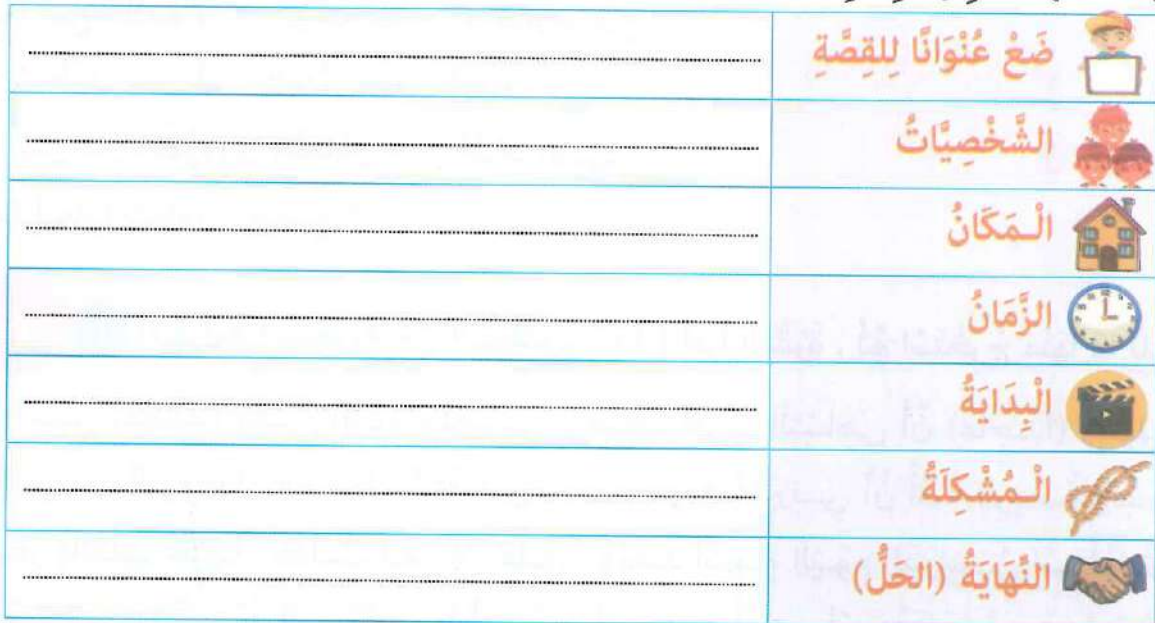 ضَعْ عُنْوَانًا لِلقِصَّةِ
الشَّخْصِيَّاتُ
الْـمَكَانُ
الزَّمَانُ
الْبِدَايَةُ
الْـمُشْكِلَةُ
النِّهَايَةُ (الحَلُّ)